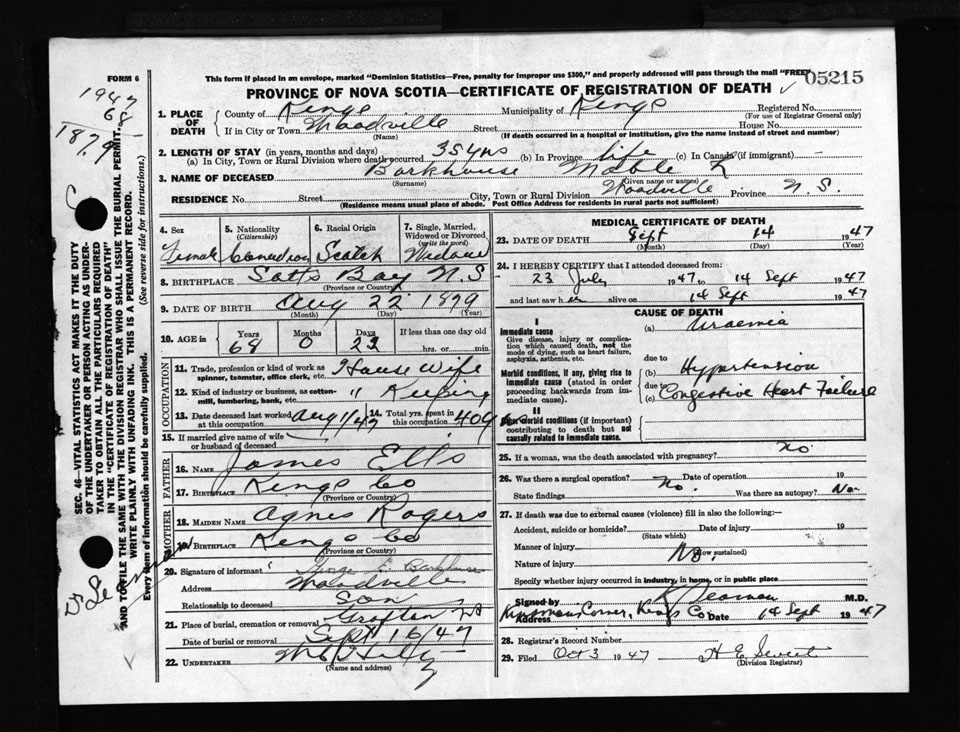 FORM 6
This form if placed in an envelope, marked "Dominion Statistics—Free, penalty for improper use $300," and properly addressed will pass through the mail "FREE"
05215
PROVINCE OF NOVA SCOTIA—CERTIFICATE OF REGISTRATION OF DEATH
1947
68
1879
1. PLACE OF DEATH
County of Kings Municipality of Kings Registered No.
(For use of Registrar General only)
If in City or Town Woodville Street House No.
(Name) (If death occurred in a hospital or institution, give the name instead of street and number)
2. LENGTH OF STAY (in years, months and days)
(a) In City, Town or Rural Division where death occurred 35 yrs (b) In Province life (c) In Canada (if immigrant) —
3. NAME OF DECEASED Barkhouse Mable
(Surname) (Given name or names)
RESIDENCE No. Street City, Town or Rural Division Woodville Province N.S.
(Residence means usual place of abode. Post Office Address for residents in rural parts not sufficient)
4. Sex Female
5. Nationality (Citizenship) Canadian
6. Racial Origin Scotch
7. Single, Married, Widowed or Divorced (write the word) Widow
8. BIRTHPLACE Bay N.S
(Province or Country)
9. DATE OF BIRTH Aug 22 1879
(Month) (Day) (Year)
10. AGE in Years 68 Months 0 Days 23 If less than one day old hrs. or min.
OCCUPATION
11. Trade, profession or kind of work as spinner, teamster, office clerk, etc. House Wife
12. Kind of industry or business, as cotton-mill, lumbering, bank, etc. " Keeping
13. Date deceased last worked at this occupation Aug 1/47
14. Total yrs. spent in this occupation 40 yrs
15. If married give name of wife or husband of deceased
FATHER
16. NAME James Ells
17. BIRTHPLACE Kings Co
(Province or Country)
MOTHER
18. MAIDEN NAME Agnes Rogers
19. BIRTHPLACE Kings Co
(Province or Country)
20. Signature of informant George Barkhouse
Address Woodville
Relationship to deceased Son
21. Place of burial, cremation or removal Grafton NS
Date of burial or removal Sept 16/47
22. UNDERTAKER
(Name and address)
MEDICAL CERTIFICATE OF DEATH
23. DATE OF DEATH Sept 14 1947
(Month) (Day) (Year)
24. I HEREBY CERTIFY that I attended deceased from:
23 July 1947 to 14 Sept 1947
and last saw her alive on 14 Sept 1947
CAUSE OF DEATH
I
Immediate cause
Give disease, injury or complication which caused death, not the mode of dying, such as heart failure, asphyxia, asthenia, etc.
(a) Uraemia
due to
Morbid conditions, if any, giving rise to immediate cause (stated in order proceeding backwards from immediate cause).
(b) Hypertension
due to
(c) Congestive Heart Failure
II
Other morbid conditions (if important) contributing to death but not causally related to immediate cause.
25. If a woman, was the death associated with pregnancy? no
26. Was there a surgical operation? No. Date of operation 19
State findings Was there an autopsy? No
27. If death was due to external causes (violence) fill in also the following:—
Accident, suicide or homicide? Date of injury 19
(State which)
Manner of injury No.
(How sustained)
Nature of injury
Specify whether injury occurred in industry, in home, or in public place
Signed by M.D.
Address Kinsmans Corner, Kings Co Date 14 Sept 1947
28. Registrar's Record Number
29. Filed Oct 3 1947 H E
(Division Registrar)
SEC. 46—VITAL STATISTICS ACT MAKES IT THE DUTY
OF THE UNDERTAKER OR PERSON ACTING AS UNDER-
TAKER TO OBTAIN ALL THE PARTICULARS REQUIRED
IN THE "CERTIFICATE OF REGISTRATION OF DEATH"
AND TO FILE THE SAME WITH THE DIVISION REGISTRAR WHO SHALL ISSUE THE BURIAL PERMIT.
WRITE PLAINLY WITH UNFADING INK. THIS IS A PERMANENT RECORD.
Every item of information should be carefully supplied. (See reverse side for instructions.)